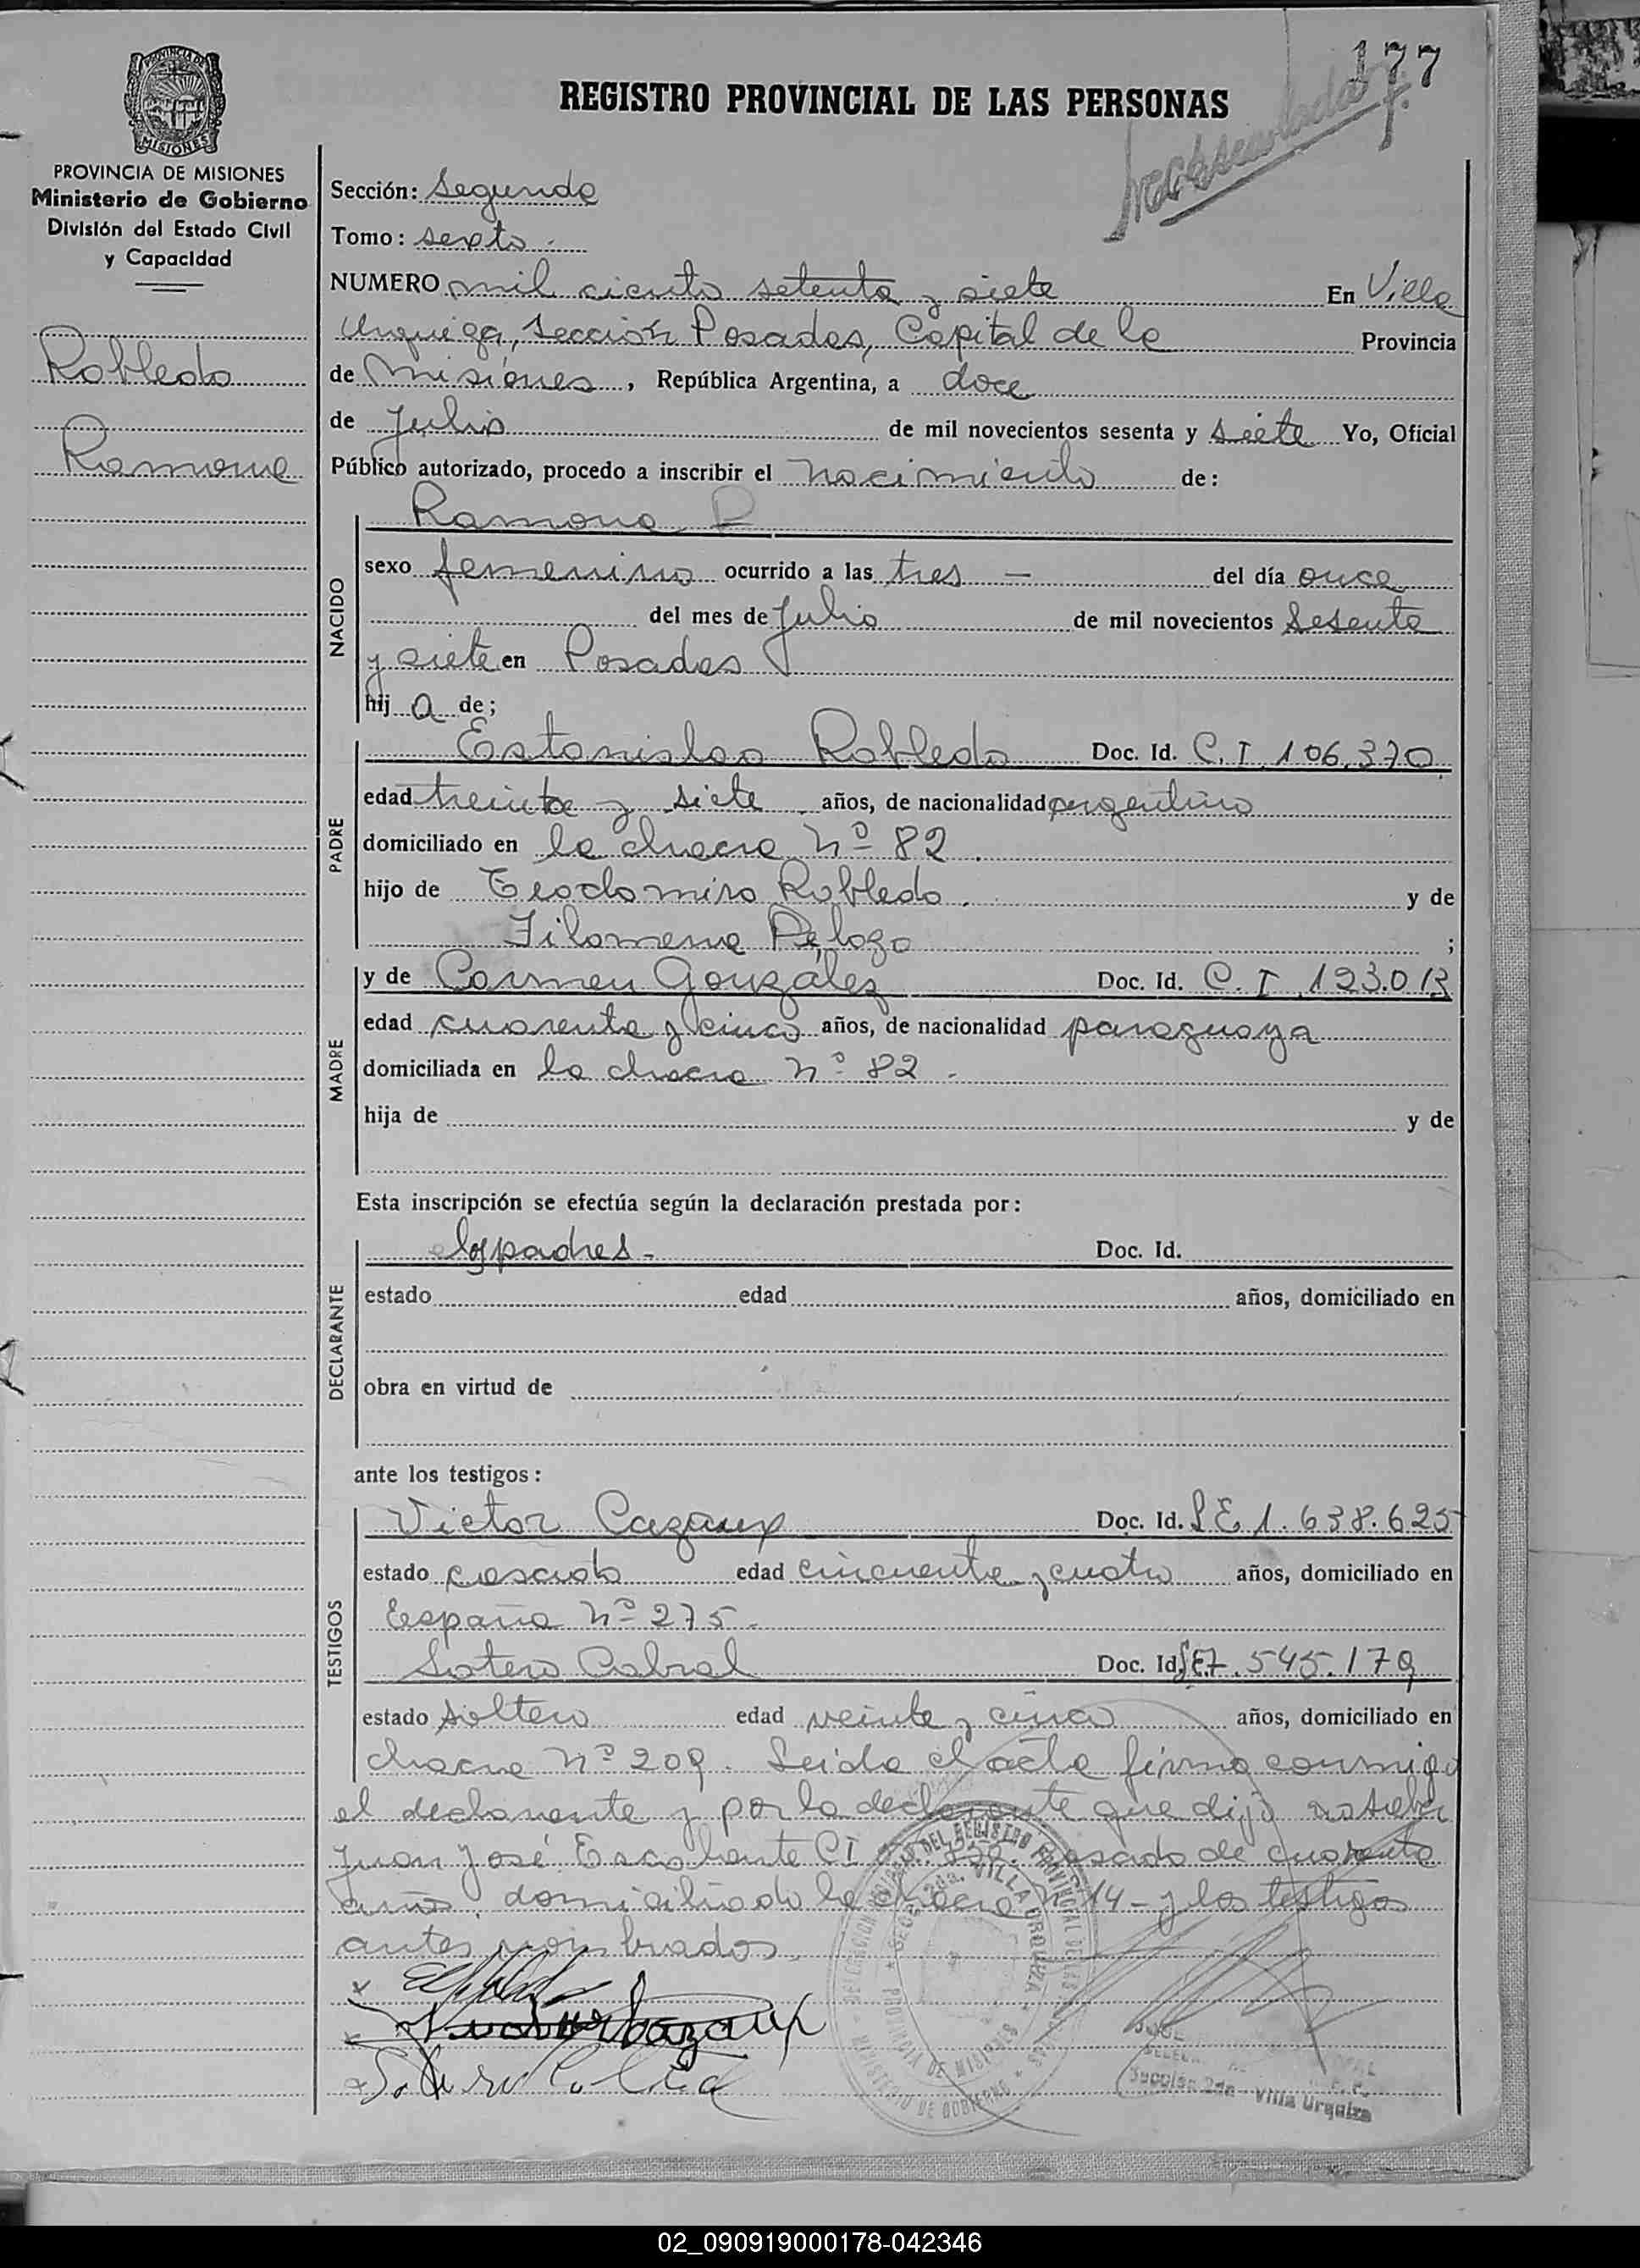 177
REGISTRO PROVINCIAL DE LAS PERSONAS
PROVINCIA DE MISIONES
Ministerio de Gobierno
División del Estado Civil
y Capacidad
Robledo
Ramona
Sección: Segunda
Tomo: sexto.
NUMERO mil ciento setenta y siete En Villa
Urquiza, Sección Posadas, Capital de la Provincia
de Misiones, República Argentina, a doce
de Julio de mil novecientos sesenta y siete Yo, Oficial
Público autorizado, procedo a inscribir el nacimiento de:
Ramona
NACIDO
sexo femenino ocurrido a las tres — del día once
del mes de Julio de mil novecientos sesenta
y siete en Posadas
hij a de;
PADRE
Estanislao Robledo Doc. Id. C.I. 106.370
edad treinta y siete años, de nacionalidad argentino
domiciliado en la chacra Nº 82.
hijo de Teodomiro Robledo. y de
Filomena Pelozo ;
MADRE
y de Carmen Gonzáles Doc. Id. C.I. 123.013
edad cuarenta y cinco años, de nacionalidad paraguaya
domiciliada en la chacra nº 82.
hija de y de
Esta inscripción se efectúa según la declaración prestada por:
DECLARANTE
los padres - Doc. Id.
estado edad años, domiciliado en
obra en virtud de
ante los testigos:
TESTIGOS
Victor Cazaux Doc. Id. L E 1.638.625
estado casado edad cincuenta y cuatro años, domiciliado en
España Nº 275.
Sotero Cabral Doc. Id. LE 7.545.179
estado soltero edad veinte y cinco años, domiciliado en
chacra Nº 209. Leída el acta firma conmigo
el declarante y por la declarante que dijo no saber
Juan José Escalante CI casado de cuarenta
años, domiciliado la chacra Nº 14 - y los testigos
antes nombrados.
Sección 2da - Villa Urquiza
02_090919000178-042346